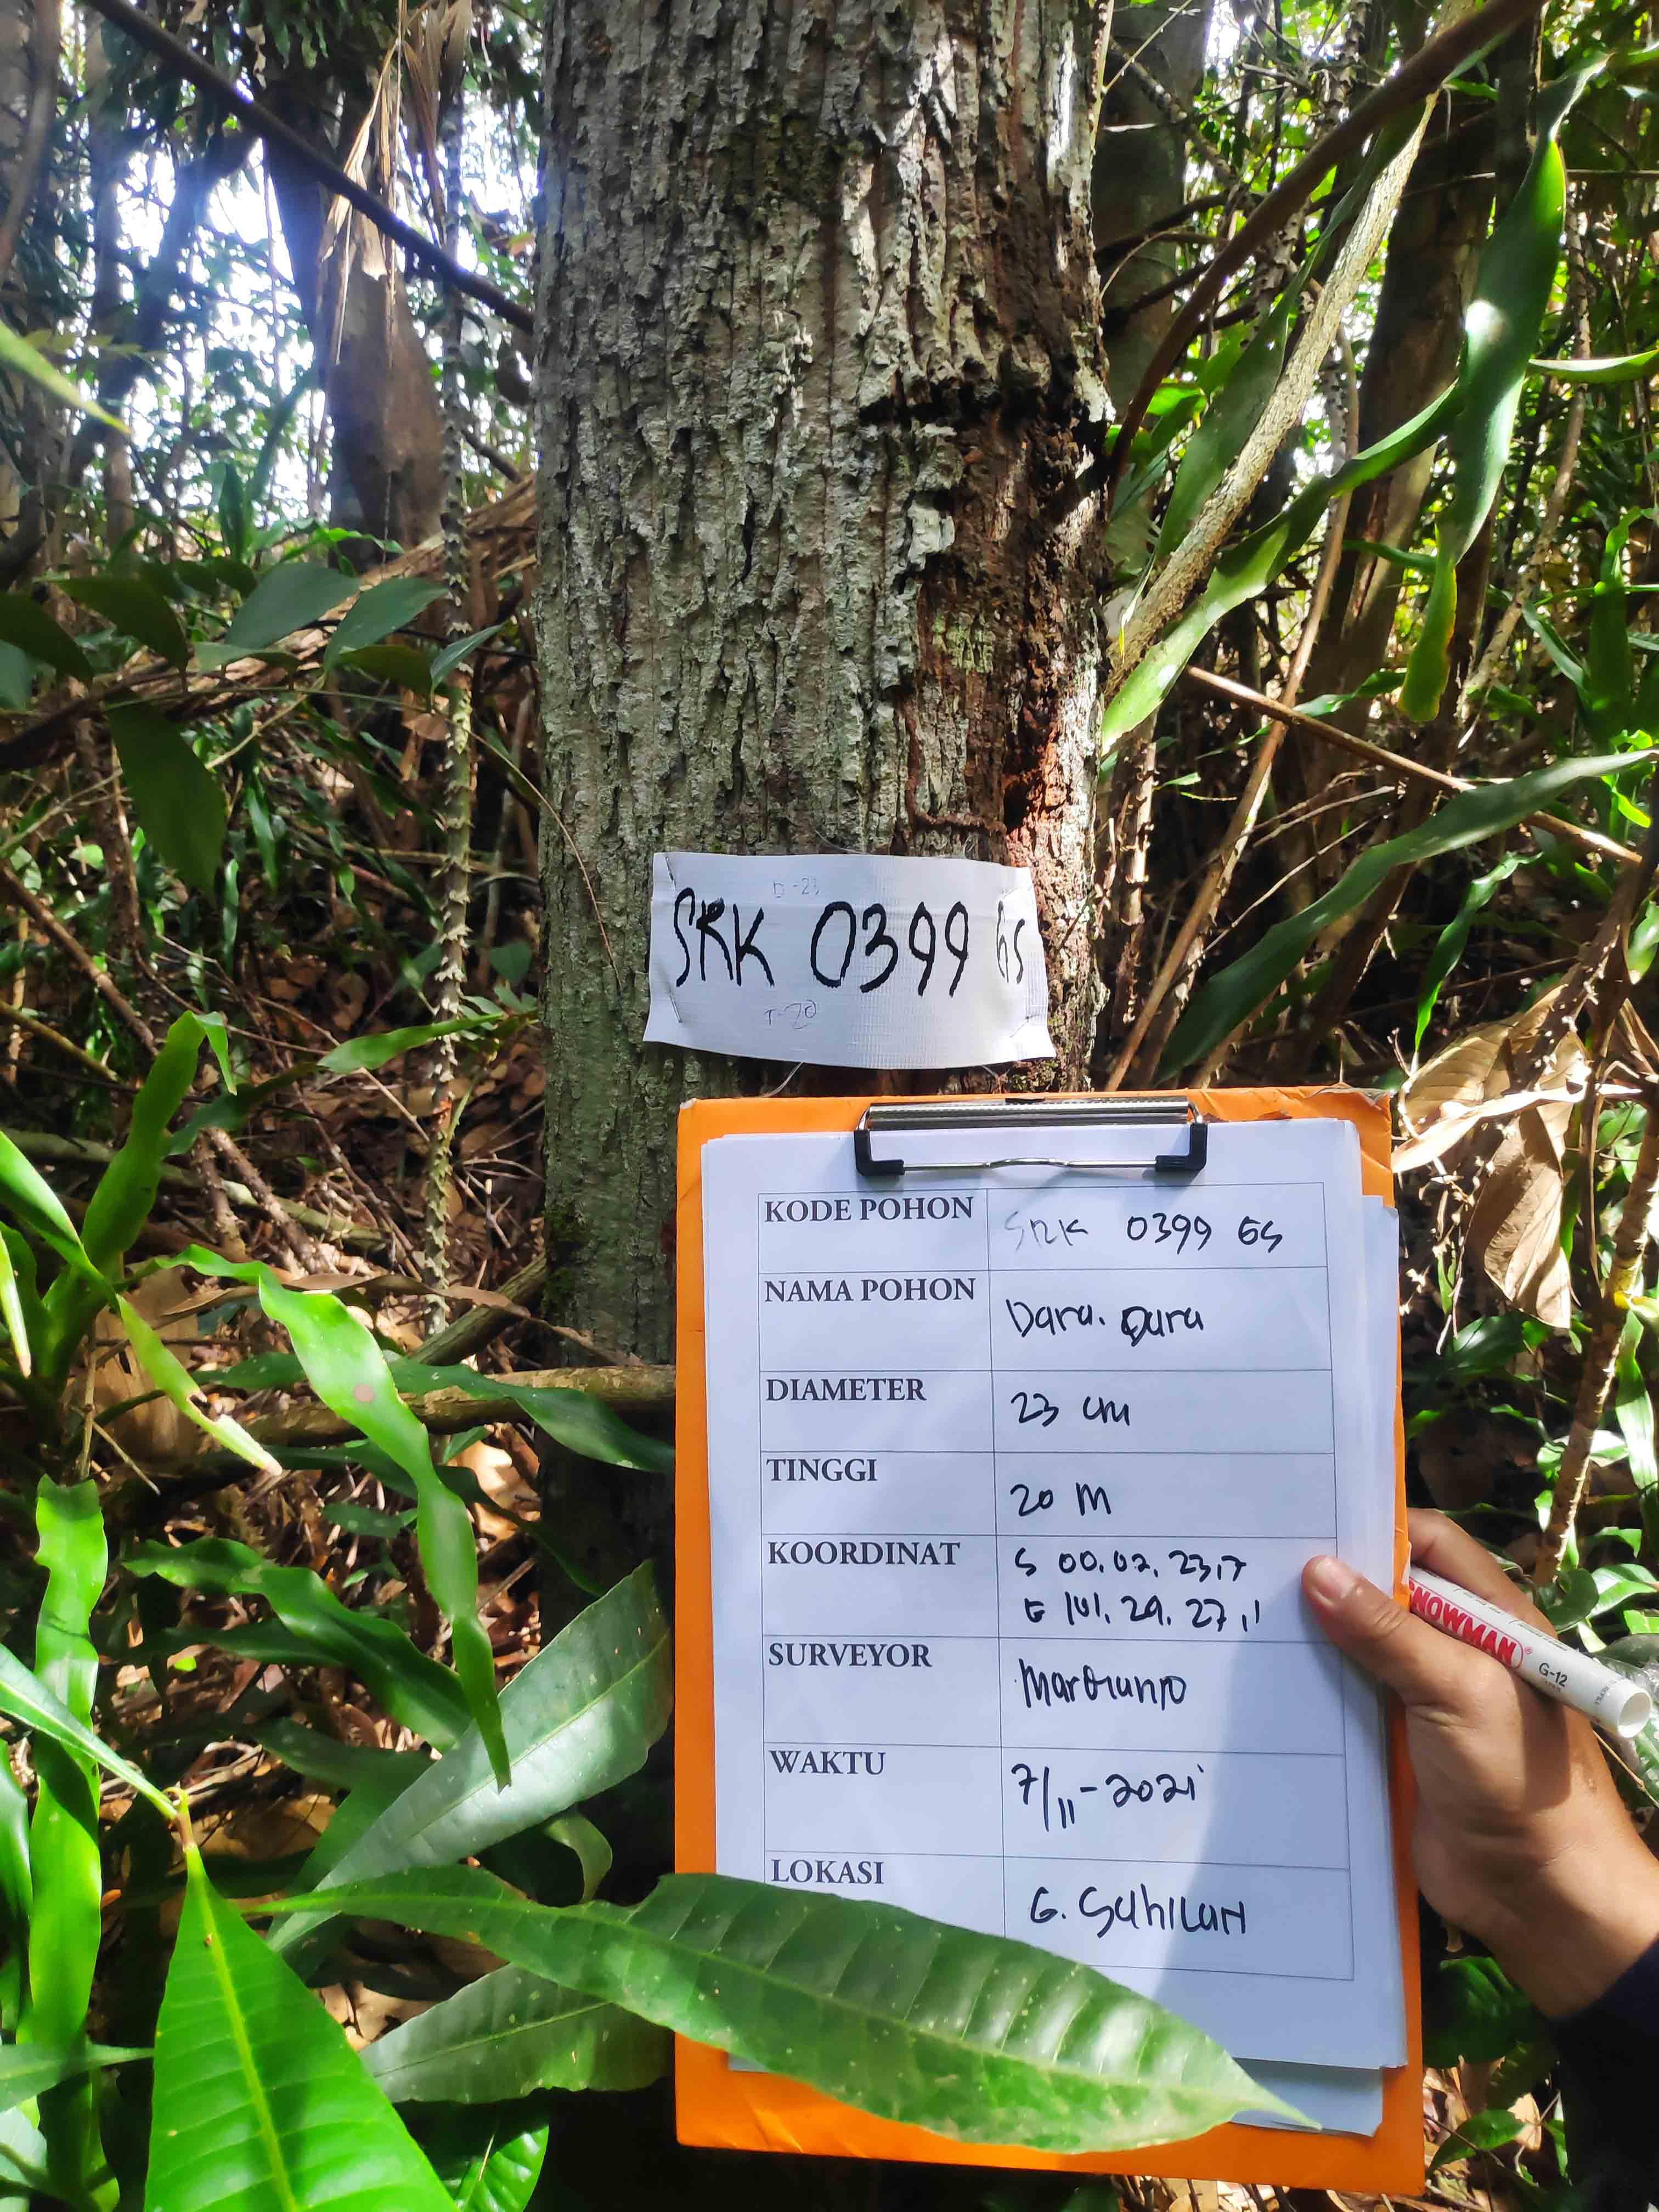 D-23
SRK 0399 GS
T-20
KODE POHON SRK 0399 GS
NAMA POHON Dara. Dara
DIAMETER 23 cm
TINGGI 20 M
KOORDINAT S 00. 02. 23,7
E 101. 29. 27,1
SURVEYOR
WAKTU 7/11-2021
LOKASI G. Sahilan
SNOWMAN
G-12